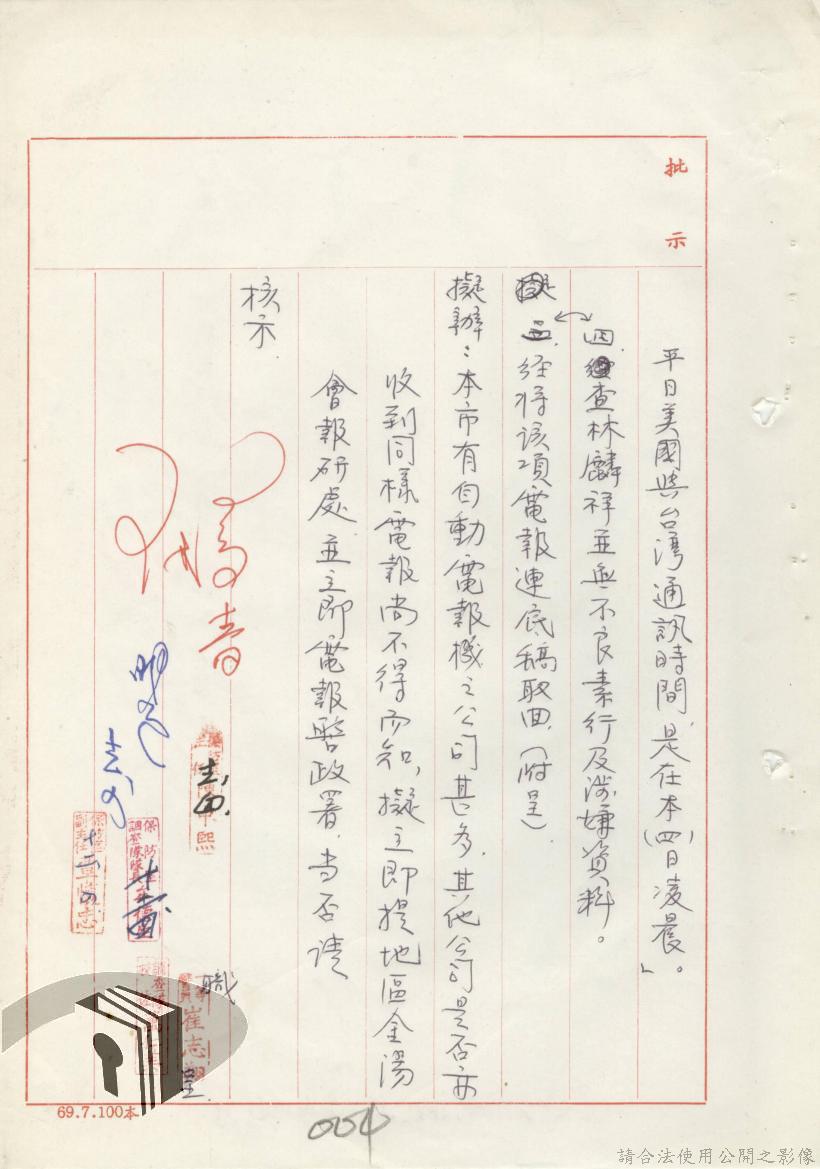 批示
平日美國與台灣通訊時間，是在本(四)日凌晨。」
四.查林麟祥並無不良素行及涉嫌資料。
三.经将该項電報連底稿取回.(附呈)
擬辦：本市有自動電報機之公司甚多.其他公司是否亦
收到同樣電報尚不得而知，擬立即提地區金湯
會報研處.並立即電報警政署.当否请
核示
職
崔志
呈
保防室
副主任
保防
調查隊隊長
69.7.100本
004
請合法使用公開之影像